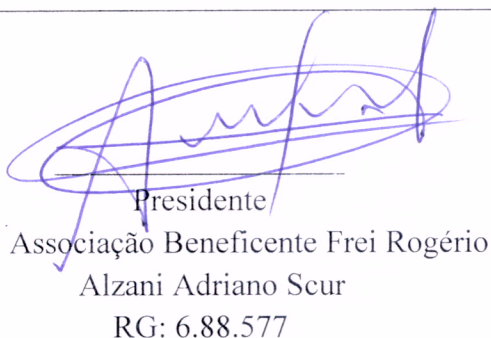 Presidente
Associação Beneficente Frei Rogério
Alzani Adriano Scur
RG: 6.88.577